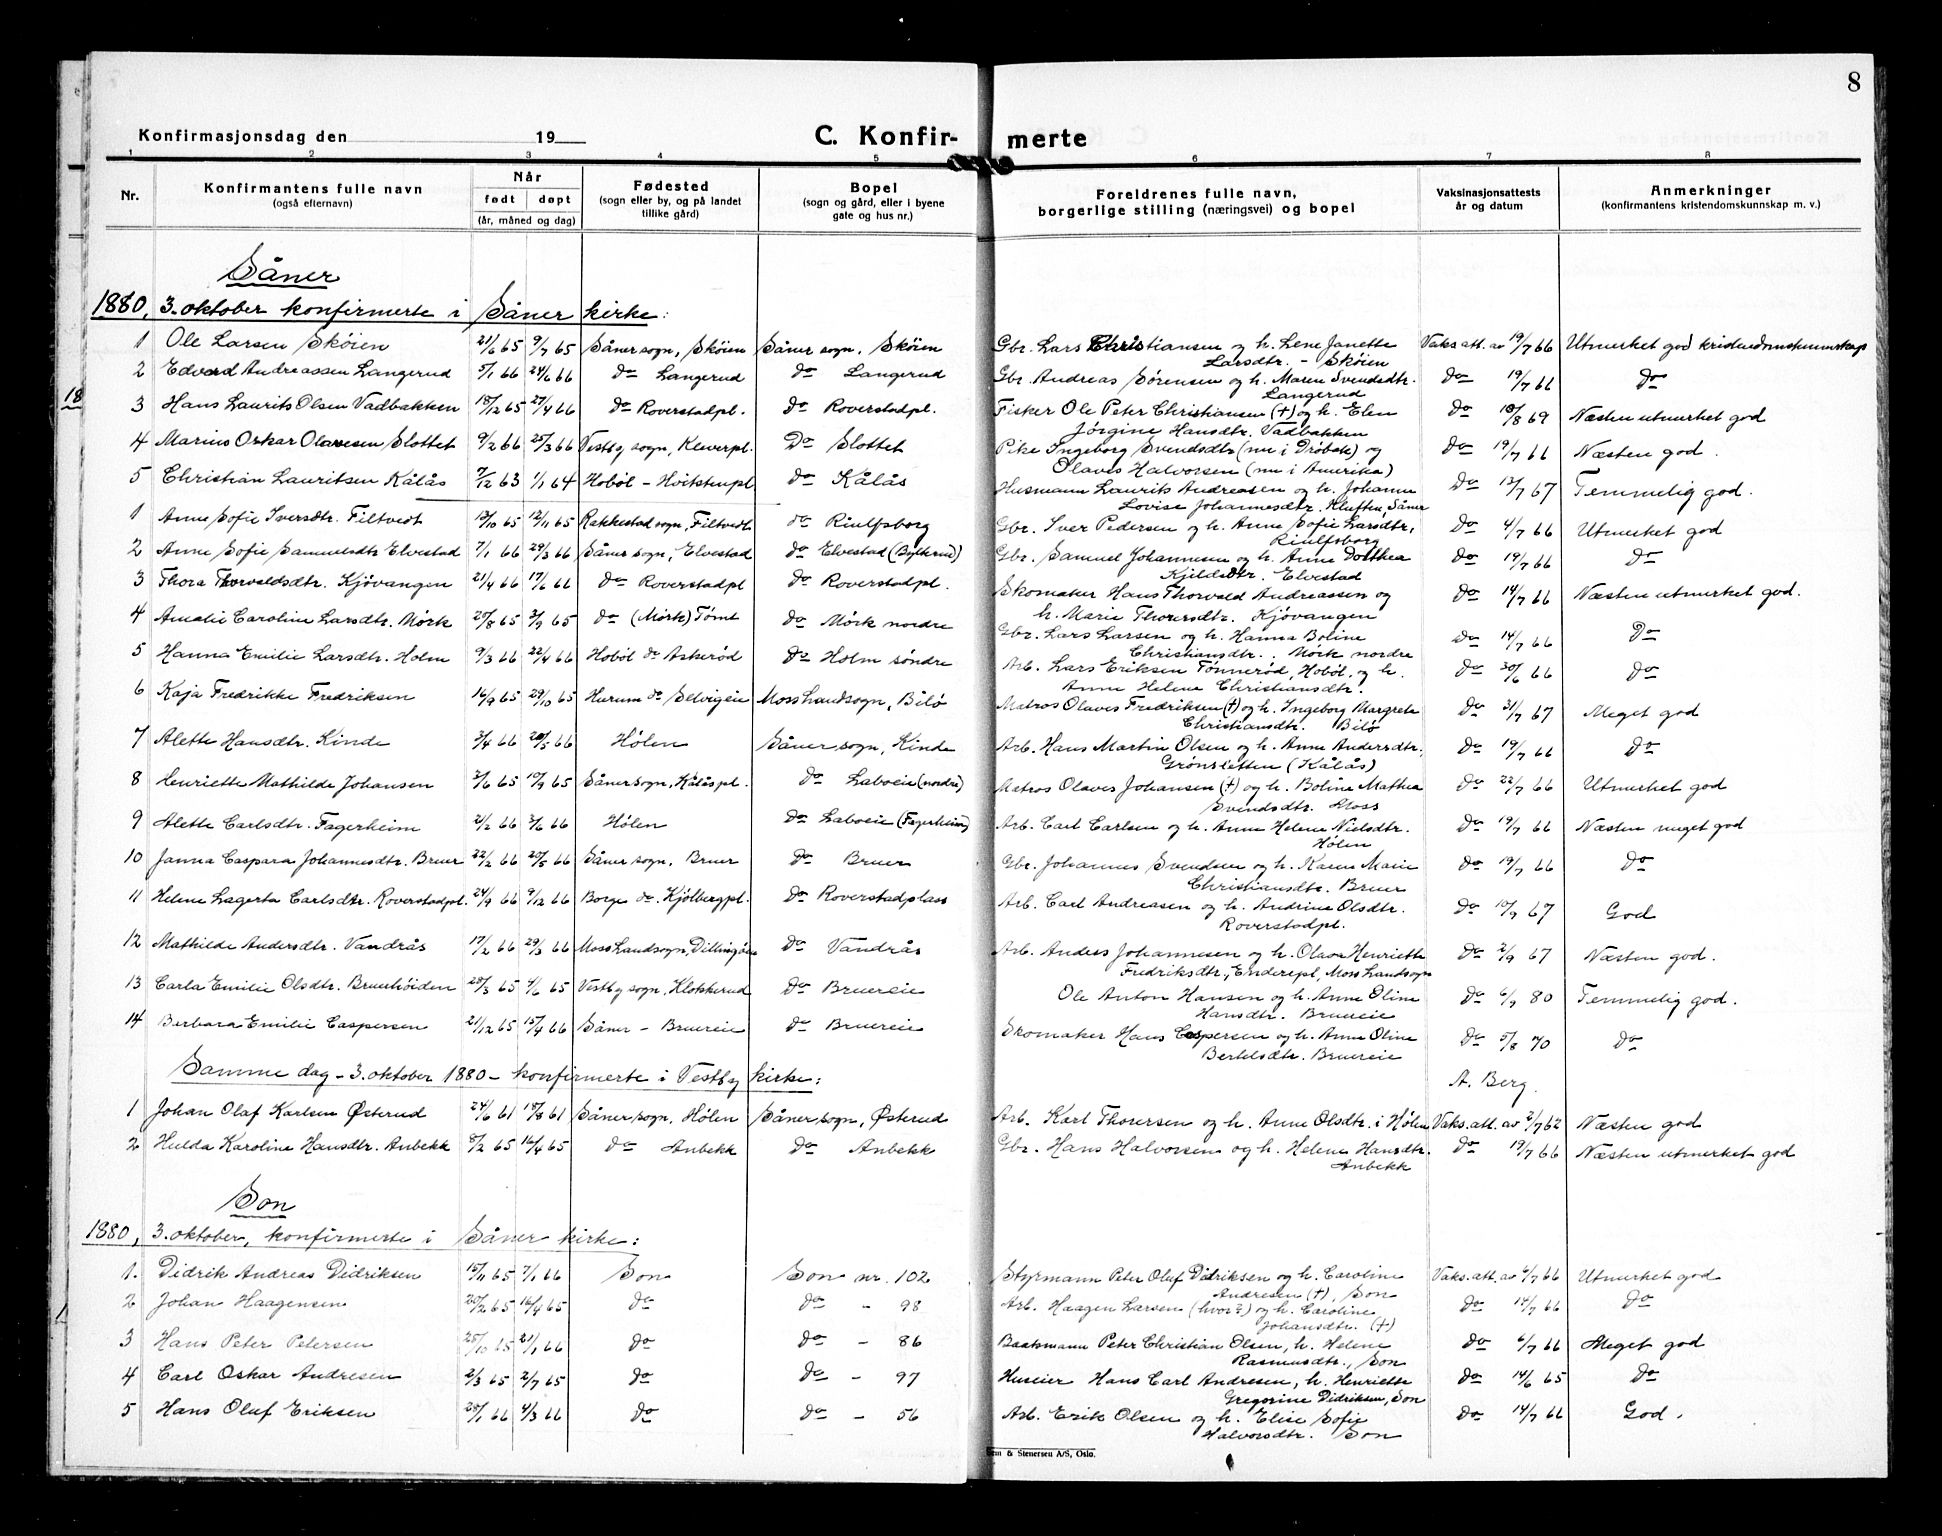 8
Konfirmasjonsdag den 19
C. Konfir- merte
1 2 3 4 5 6 7 8
Nr. Konfirmantens fulle navn (også efternavn) Når født døpt (år, måned og dag) Fødested (sogn eller by, og på landet tillike gård) Bopel (sogn og gård, eller i byene gate og hus nr.) Foreldrenes fulle navn, borgerlige stilling (næringsvei) og bopel Vaksinasjonsattests år og datum Anmerkninger (konfirmantens kristendomskunnskap m. v.)
Såner
1880, 3. oktober konfirmerte i Såner kirke:
1 Ole Larsen Sköien 21/6 65 9/7 65 Såner sogn, Sköien Såner sogn. Sköien Gbr. Lars Christiansen og h. Lene Janette Larsdtr. - Sköien Vaks att. av 19/7 66 Utmerket god kristendomskunnskap
2 Edvard Andreassen Langerud 5/1 66 24/6 66 do Langerud do Langerud Gbr. Andreas Sörensen og h. Maren Svendsdtr. Langerud do 19/7 66 do
3 Hans Laurits Olsen Vadbakken 18/12 65 27/4 66 do Roverstadpl. do Roverstadpl. Fisker Ole Peter Christiansen (+) og h. Elen Jörgine Hansdtr. Vadbakken do 18/8 69 Næsten utmerket god
4 Marius Oskar Olavesen Slottet 9/2 66 25/3 66 Vestby sogn, Kleverpl. Do Slottet Pike Ingeborg Svendsdtr (nu i Dröbak) og Olaves Halvorsen (nu i Amerika) do 19/7 66 Næsten god.
5 Christian Lauritsen Kålås 7/12 63 1/1 64 Hoböl - Hvitstenpl do Kålås Husmann Laurits Andreasen og h. Johanne Lovise Johannesdtr. Kluften, Såner Do 13/7 67 Temmelig god.
1 Anne Sofie Iversdtr. Filtvedt 13/10 65 12/11 65 Rakkestad sogn, Filtvedt do Riulfsborg Gbr. Iver Pedersen og h. Anne Sofie Larsdtr, Riulfsborg Do 4/7 66 Utmerket god
2 Anne Sofie Samuelsdtr Elvestad 7/1 66 29/3 66 Såner sogn, Elvestad do Elvestad (Bylterud) Gbr. Samuel Johannesen og h. Anne Dorthea Kjeldsdtr. Elvestad do 19/7 66 Do
3 Thora Thorvaldsdtr. Kjövangen 21/4 66 17/6 66 do Roverstadpl do Roverstadpl. Skomaker Hans Thorvald Andreassen og h. Marie Thoresdtr. Kjövangen do 14/7 66 Næsten utmerket god.
4 Amalie Caroline Larsdtr. Mörk 27/8 65 3/9 65 do (Mörk) Tömt do Mörk nordre Gbr. Lars Larsen og h. Hanna Boline Christiansdtr. Mörk nordre Do 14/7 66 Do
5 Hanna Emilie Larsdtr. Holm 9/3 66 22/4 66 Hoböl do Askeröd do Holm söndre Arb. Lars Eriksen Tönneröd, Hoböl, og h. Anne Helene Christiansdtr. do 30/6 66 do
6 Kaja Fredrikke Fredriksen 16/9 65 29/10 65 Hurum do Selvigeie Moss landsogn, Bilö Matros Olaves Fredriksen (+) og h. Ingeborg Margrete Christiansdtr. Bilö do 31/7 67 Meget god
7 Alette Hansdtr. Kinde 3/4 66 20/5 66 Hölen Såner sogn, Kinde Arb. Hans Martin Olsen og h. Anne Andersdtr. Grönsletten (Kålås) do 19/7 66 Do
8 Henriette Mathilde Johansen 3/6 65 10/9 65 Såner sogn, Kålåspl. do Laboeie (nordre) Matros Olaves Johansen (+) og h. Boline Mathea Svendsdtr. Moss do 22/7 66 Utmerket god
9 Alette Carlsdtr. Fagerheim 21/2 66 3/6 66 Hölen do Laboeie (Fagerheim) Arb. Carl Carlsen og h. Anne Helene Nielsdtr. Hölen do 19/7 66 Næsten meget god
10 Janna Caspara Johannesdtr. Bruer 22/2 66 20/5 66 Såner sogn. Bruer do Bruer Gbr. Johannes Svendsen og h. Karen Marie Christiansdtr. Bruer do 19/7 66 do
11 Helene Lagerta Carlsdtr. Roverstadpl. 24/9 66 9/12 66 Borge do. Kjölbergpl. do Roverstadplass Arb. Carl Andreasen og h. Andrine Olsdtr. Roverstadpl. do 10/9 67 God
12 Mathilde Andersdtr. Vandrås 17/2 66 29/3 66 Moss Landsogn, Dillingöen do Vandrås Arb. Anders Johannesen og h. Olava Henriette Fredriksdtr., Enderepl, Moss Landsogn do 2/9 67 Næsten god.
13 Carla Emilie Olsdtr. Bruerhöiden 28/3 65 4/6 65 Vestby sogn, Klokkerud do Bruereie Ole Anton Hansen og h. Anne Oline Hansdtr. Bruereie do 6/9 80 Temmelig god.
14 Berbara Emilie Caspersen 21/12 65 15/4 66 Såner - Bruereie do Bruereie Skomaker Hans Caspersen og h. Anne Oline Bertelsdtr. Bruereie do 5/8 70 do
A. Berg.
Samme dag - 3. oktober 1880 - konfirmerte i Vestby kirke:
1 Johan Olaf Karlsen Österud 24/6 61 18/8 61 Såner sogn, Hölen Såner sogn, Österud Arb. Karl Thoresen og h. Anne Olsdtr. i Hölen Vaks. att. av 2/7 62 Næsten god
2 Hulda Karoline Hansdtr. Anbekk 8/2 65 16/4 65 do Anbekk do Anbekk Gbr. Hans Halvorsen og h. Helene Hansdtr. Anbekk do 19/7 66 Næsten utmerket god
Son
1880, 3. oktober, konfirmerte i Såner kirke:
1. Didrik Andreas Didriksen 15/11 65 7/1 66 Son Son nr. 102 Styrmann Peter Oluf Didriksen og h. Caroline Andresen (+), Son Vaks. att. av 6/7 66 Utmerket god
2 Johan Haagensen 20/2 65 16/4 65 do do - 98 Arb. Haagen Larsen (hvor?) og h. Caroline Johansdtr. (+) do 14/7 66 do
3 Hans Peter Petersen 25/10 65 21/1 66 do do - 86 Baatsmann Peter Christian Olsen, h. Helene Rasmusdtr., Son do 6/7 66 Meget god
4 Carl Oskar Andresen 2/3 65 2/7 65 do do - 97 Huseier Hans Carl Andresen, h. Henriette Gregorine Didriksen, Son do 14/6 65 do
5 Hans Oluf Eriksen 28/1 66 4/3 66 do do - 56 Arb. Erik Olsen og h. Elise Sofie Halvorsdtr. Son do 14/7 66 God.
& Stenersen A/S, Oslo.
18